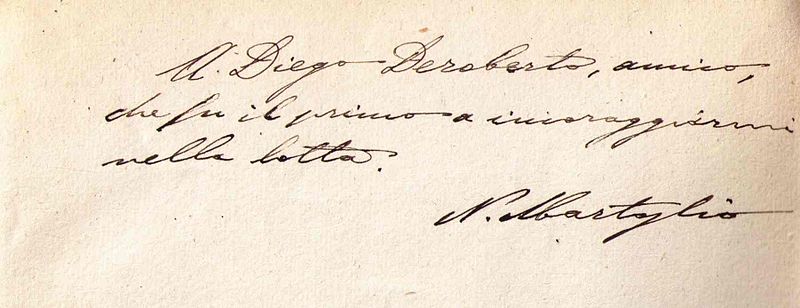 A Diego Deroberto, amico,
che fu il primo a incoraggiarmi
nella lotta.
N. Martoglio